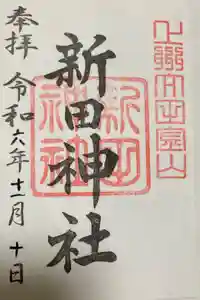 新田神社
新田神社
奉拝
令和六年十一月十日